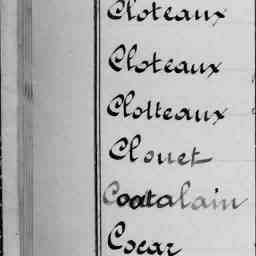 Cloteaux
Cloteaux
Clotteaux
Clouet
Coatalain
Cocar